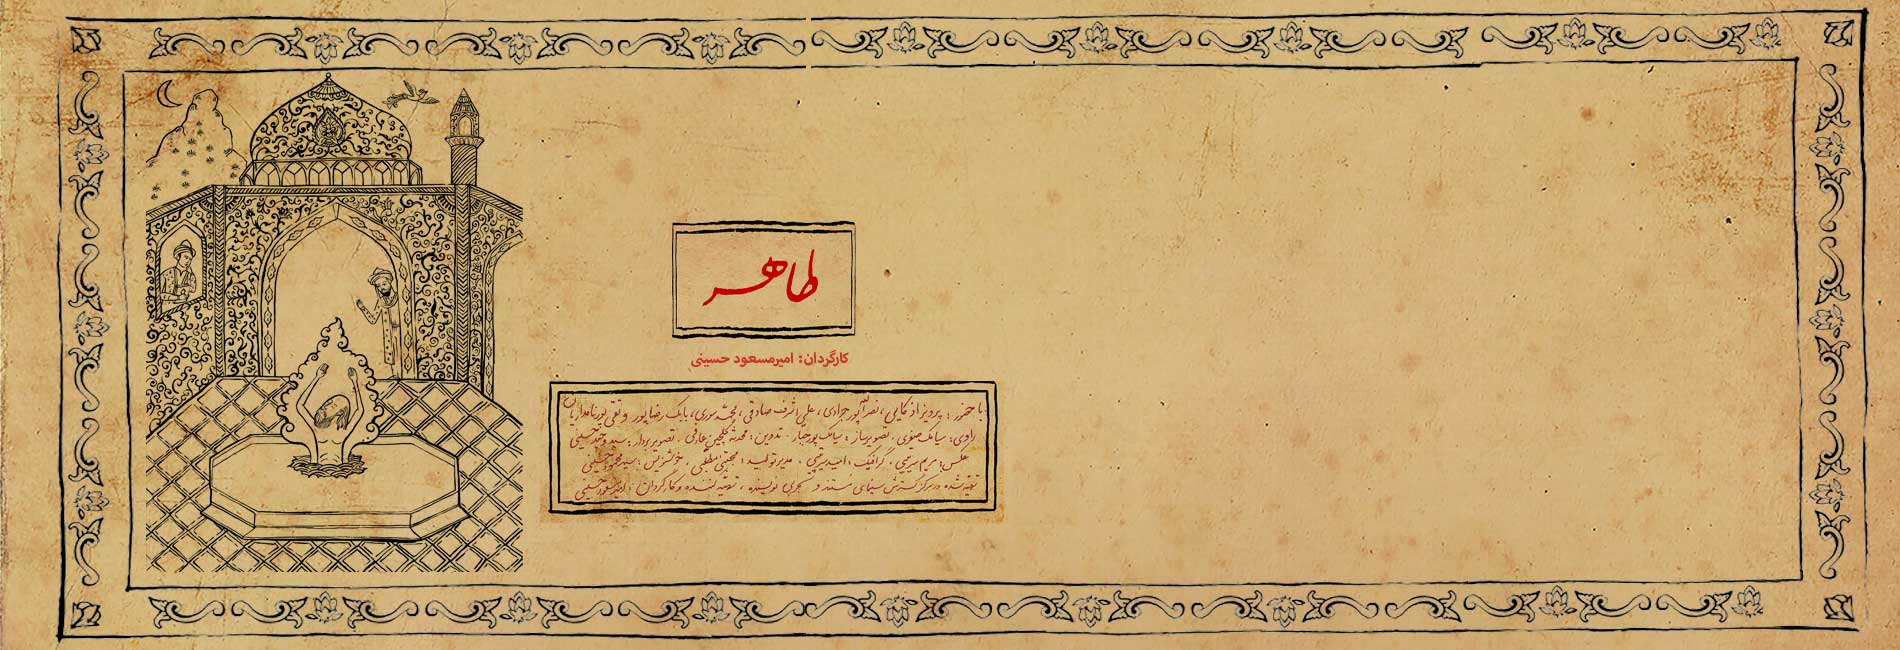 طاهر
کارگردان: امیرمسعود حسینی
با حضور: پرویز اذکایی، نصرالله پورجوادی، علی اشرف صادقی، محمد سوری، بابک رضاپور و تقی پورنامداریان
راوی: سیامک صفری. تصویرساز: سیامک پورجبار. تدوین: محدثه گلچین عارفی. تصویربردار: سید وحید حسینی
عکس: مریم بیرمی. گرافیک: امید بیرمی. مدیر تولید: مجتبی مطلبی. خوشنویس: سید محمود حسینی
تهیه شده در مرکز گسترش سینمای مستند و تجربی نویسنده، تهیه کننده و کارگردان: امیرمسعود حسینی